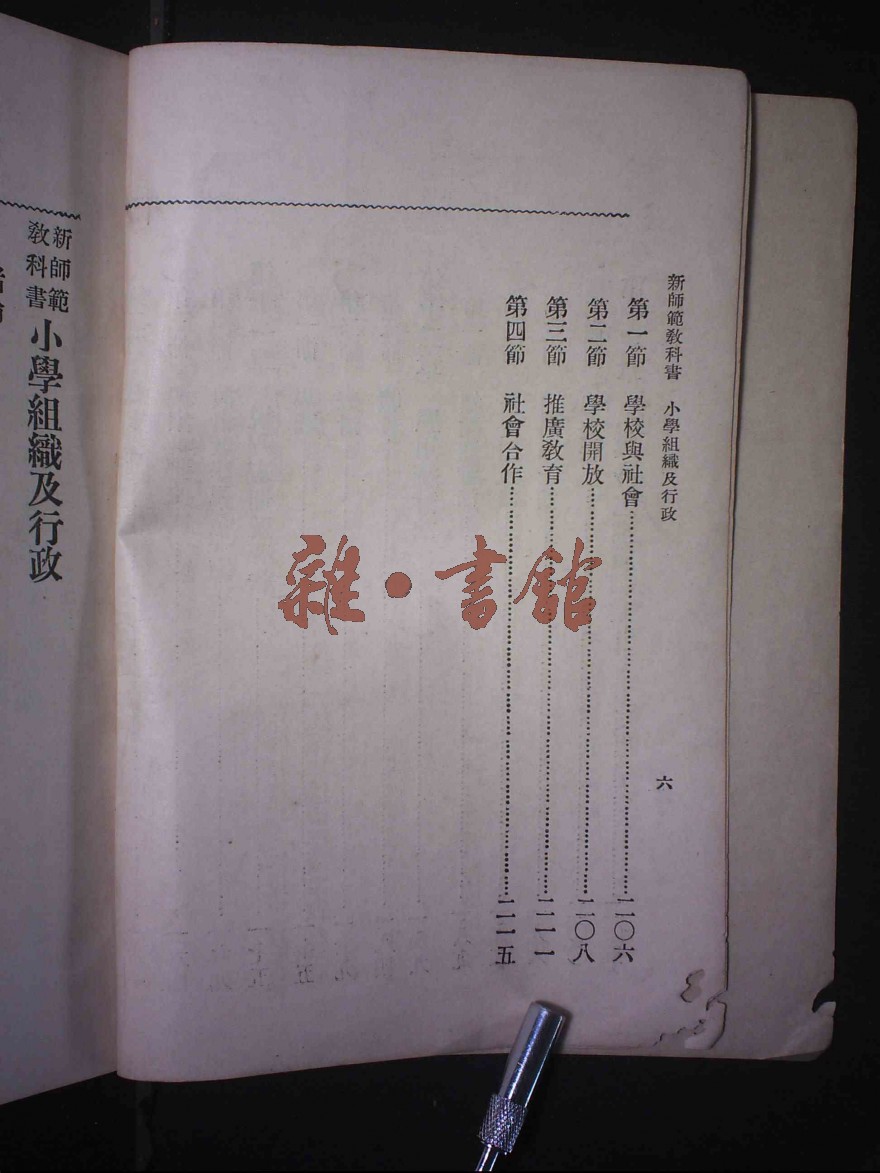 新師範教科書　小學組織及行政
六
第一節　學校與社會……二〇六
第二節　學校開放……二〇八
第三節　推廣敎育……二一一
第四節　社會合作……二一五
新師範
敎科書
小學組織及行政
雜·書館